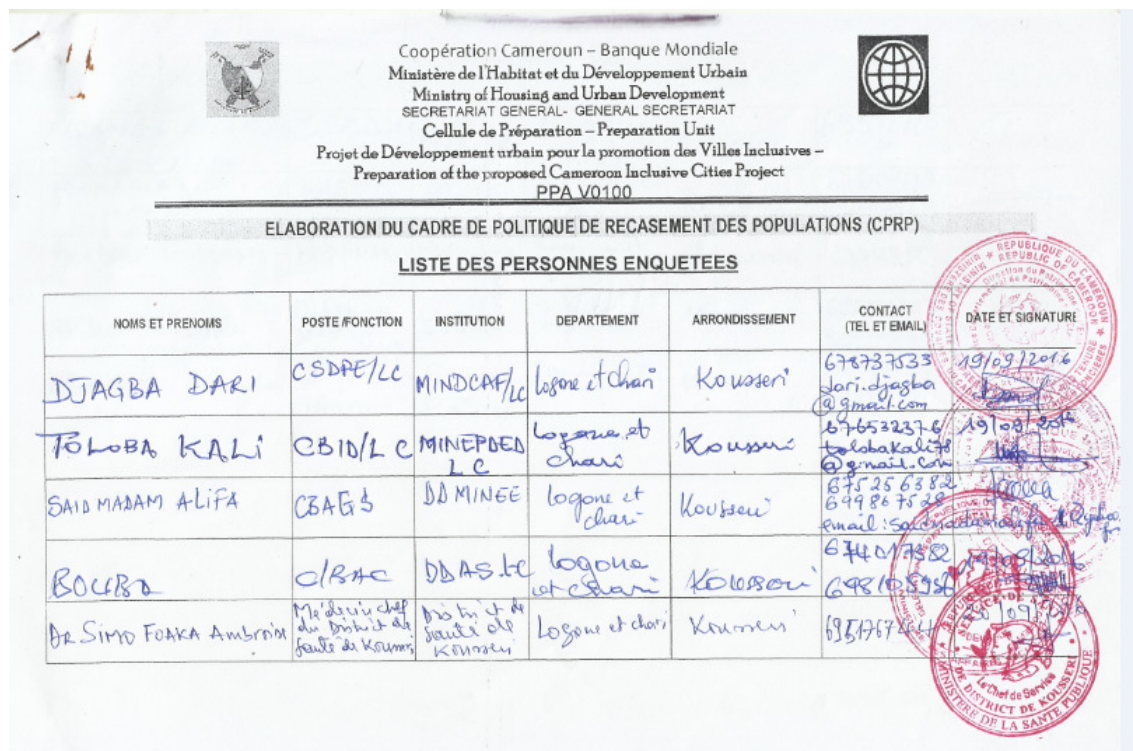 Coopération Cameroun – Banque Mondiale
Ministère de l'Habitat et du Développement Urbain
Ministry of Housing and Urban Development
SECRETARIAT GENERAL- GENERAL SECRETARIAT
Cellule de Préparation – Preparation Unit
Projet de Développement urbain pour la promotion des Villes Inclusives –
Preparation of the proposed Cameroon Inclusive Cities Project
PPA V0100
ELABORATION DU CADRE DE POLITIQUE DE RECASEMENT DES POPULATIONS (CPRP)
LISTE DES PERSONNES ENQUETEES
NOMS ET PRENOMS POSTE /FONCTION INSTITUTION DEPARTEMENT ARRONDISSEMENT CONTACT (TEL ET EMAIL) DATE ET SIGNATURE
DJAGBA DARI CSDPE/LC MINDCAF/LC logone et chari Kousseri 678737533 19/09/2016
dari.djagba
@gmail.com
TOLOBA KALI CBID/LC MINEPDED LC logone et chari Kousseri 676532376 19/09/2016
tolobakali78
@gmail.com
SAID MADAM ALIFA DDMINEE logone et chari Kousseri 675256382
email :
BOUBA C/BAC DDAS-LC logone et chari Kousseri
Dr SIMO FOAKA Ambroise Médecin chef du District de santé de Kousseri District de santé de Kousseri Logone et chari Kousseri
REPUBLIQUE DU CAMEROUN
REPUBLIC OF CAMEROON
Le Chef de Service
DE DISTRICT DE KOUSSERI
MINISTERE DE LA SANTE PUBLIQUE